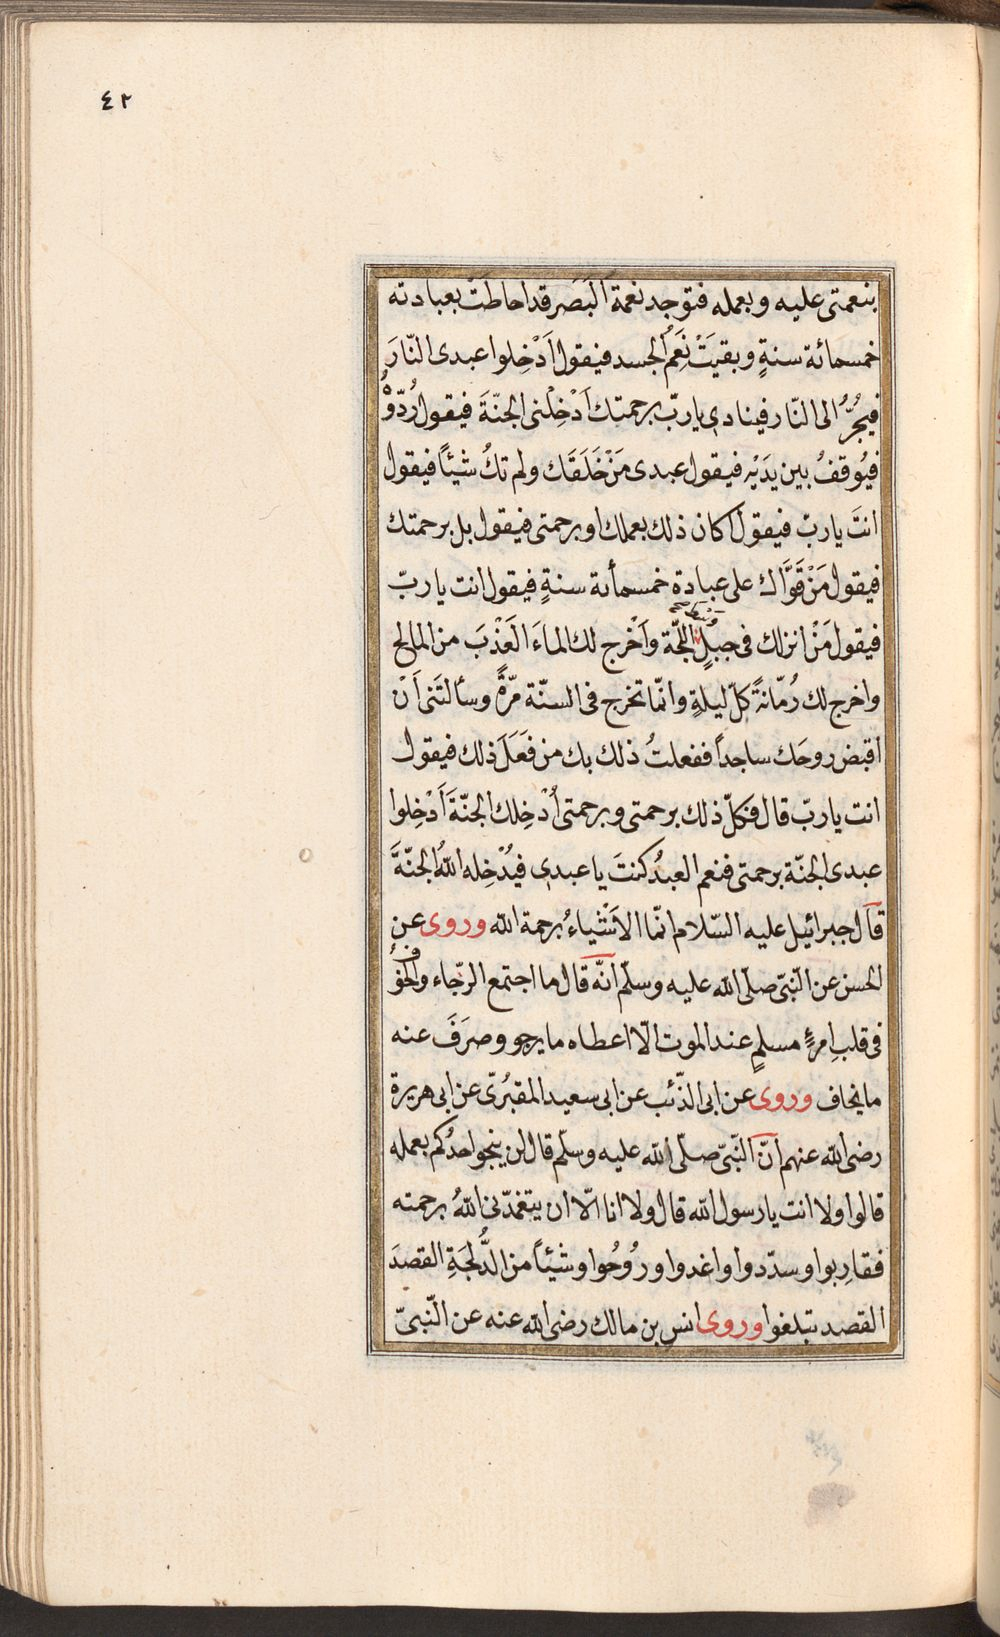 ٤٢
بنعمتى عليه وبعمله فتوجد نعمة البَصَر قد احاطَتْ بعبادته
خمسمائة سنةٍ وبقيَتْ نِعَمُ الجسد فيقول اَدْخِلوا عبدى النّارَ
فيُجَرُّ الى النّار فينادى يا ربّ برحمتك اَدْخِلْنى الجنّةَ فيقول رُدّوْهُ
فيُوقفُ بين يدَيْه فيقول عبدى مَنْ خَلَقَك ولم تكُ شيئاً فيقول
انتَ يا ربّ فيقول اكان ذلك بعملك او برحمتى فيقول بل برحمتك
فيقول مَنْ قَوَّاك على عبادة خمسمأئة سنةٍ فيقول انت يا ربّ
فيقول مَنْ انزلك فى جبلٍ اللجّة واَخْرج لك الماءَ العَذْبَ من المالح
واخرج لك رُمّانةً كلّ ليلةٍ وانّما تخرج فى السنّة مرّةً وسألتَنى اَنْ
اقبض روحَك ساجداً ففعلتُ ذلك بك من فَعَلَ ذلك فيقول
انت يا ربّ قال فكلّ ذلك برحمتى وبرحمتى اُدْخِلك الجنّةَ اَدْخِلوا
عبدى الجنّة برحمتى فنعم العبدُ كنتَ يا عبدى فيُدْخِله اللّهُ الجنّةَ
قال جبرائيل عليه السّلام انّما الاَشْياءُ برحمة اللّه وروى عن
الحسن عن النّبىّ صلّى اللّه عليه وسلّم انّه قال ما اجتمع الرّجاء والخوفُ
فى قلبِ امرءٍ مسلمٍ عند الموت الّا اعطاه ما يرجو وصرَفَ عنه
ما يخاف وروى عن ابى الذّئب عن ابى سعيد المقبُرىّ عن ابى هريرة
رضى اللّه عنهم انّ النّبىّ صلّى اللّه عليه وسلّم قال لن ينجو احدُكم بعمله
قالوا ولا انت يا رسول اللّه قال ولا انا الّا ان يتغمّدنى اللّهُ برحمته
فقارِبوا وسدّدوا واغدوا ورُوحُوا وشيْئاً من الدُّلجَةِ القصدَ
القصد تبلغوا وروى انس بن مالك رضى اللّه عنه عن النّبىّ